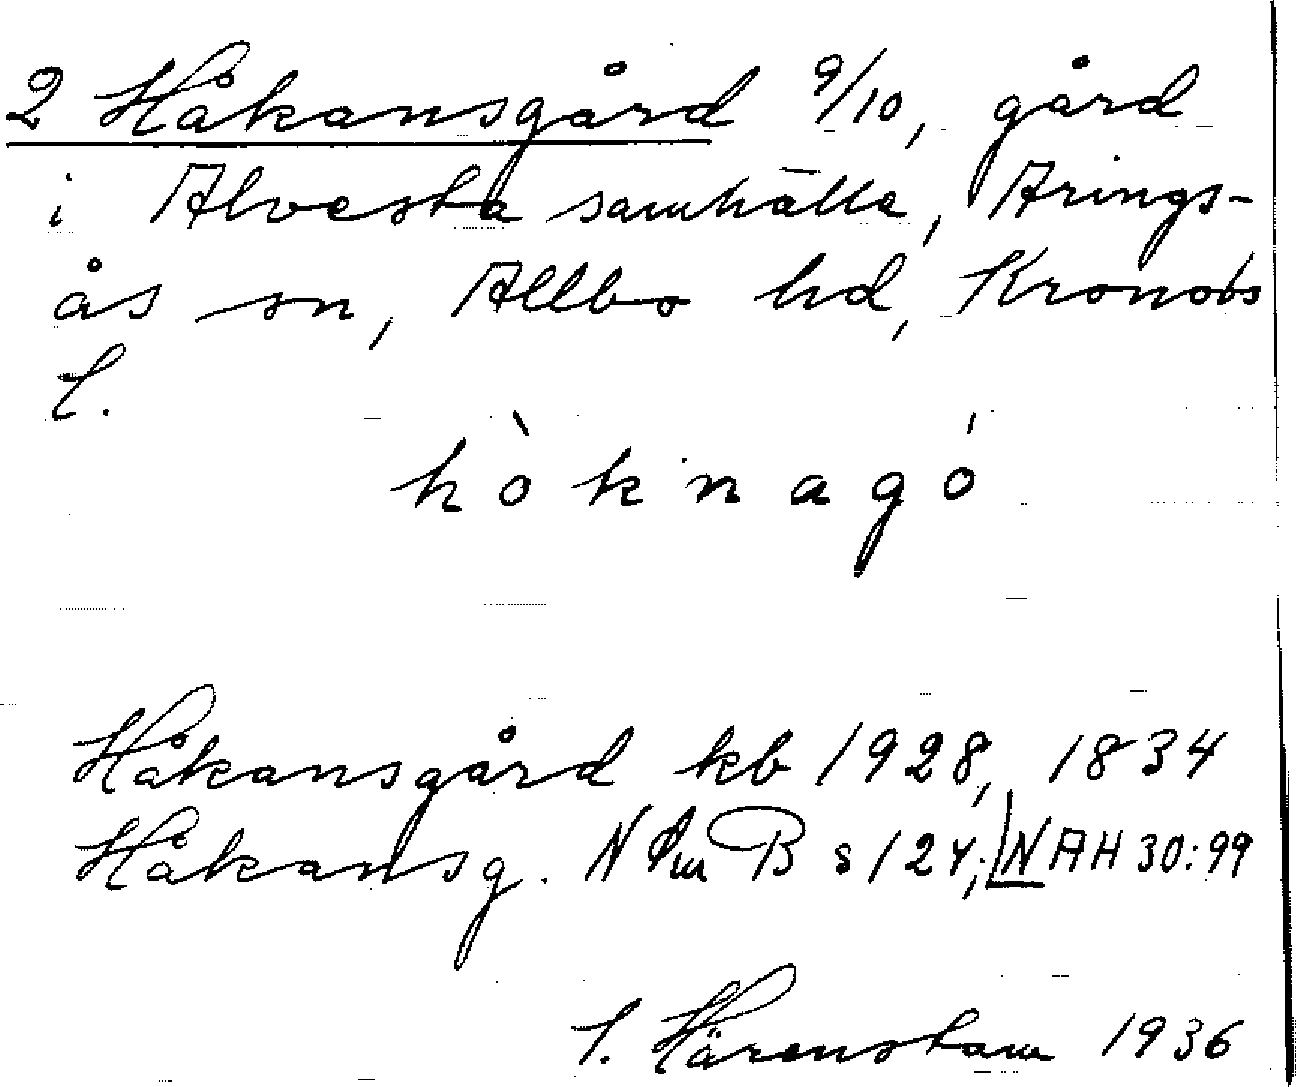 2 Håkansgård 9/10, gård
i Alvesta samhälle, Arings-
ås sn, Allbo hd, Kronobs
l.
hòknagó
Håkansgård kb 1928, 1834
Håkansg. N B s 124; NAH 30:99
Härenstam 1936